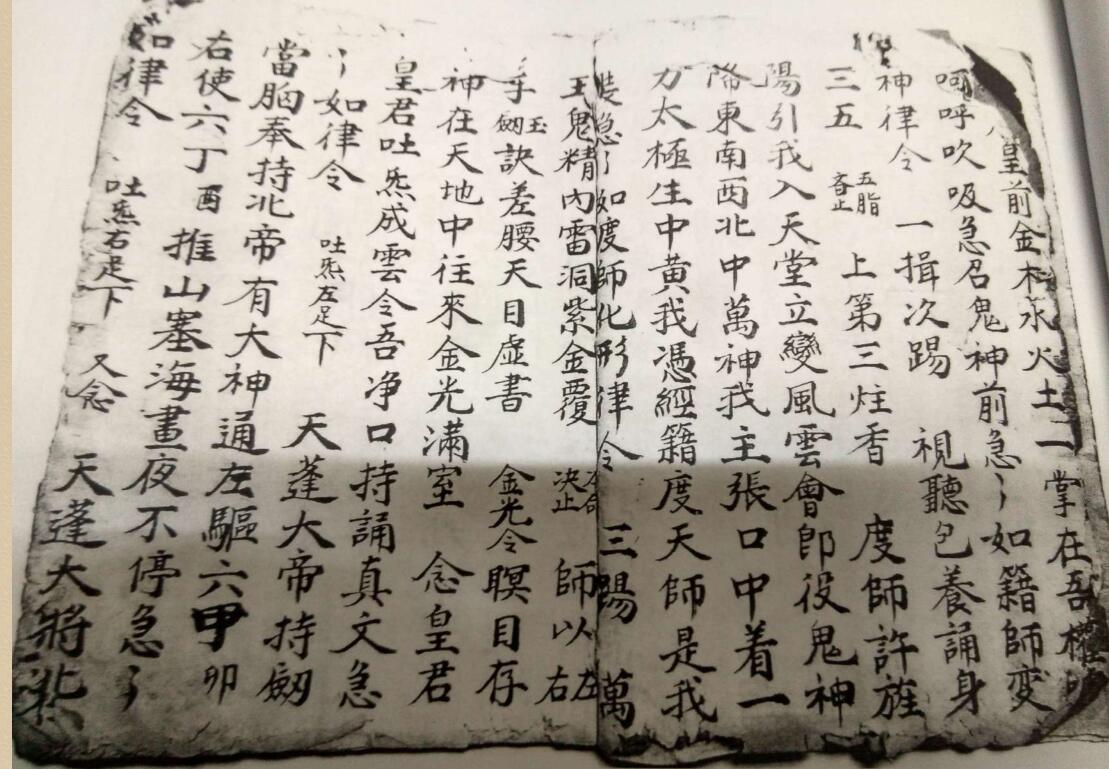 皇前金木水火土一掌在吾權
呵呼吹吸急召鬼神前急々如籍師变
神律令 一揖次踢 視聽包養誦身
三五 五脂吞止 上第三炷香 度師許旌
陽引我入天堂立變風雲會即役鬼神
降東南西北中萬神我主張口中着一
力太極生中黄我憑經籍度天師是我
裝急々如度師化形律令 三陽 萬
王鬼精内雷洞紫金覆 決止 師以左右
手玉劔訣差腰天目虚書 金光令瞑目存
神在天地中往來金光滿室 念皇君
皇君吐炁成雲令吾净口持誦真文急
々如律令 吐炁左足下 天蓬大帝持劔
當胸奉持北帝有大神通左驅六甲卯
右使六丁酉推山塞海晝夜不停急々
如律令 吐炁右足下 又念 天蓬大將